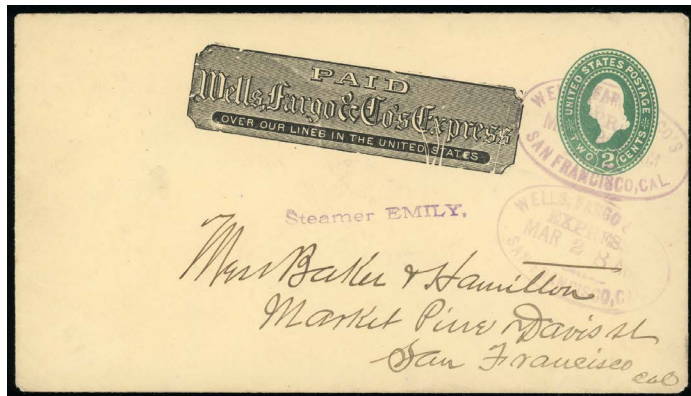 PAID
Wells, Fargo & Co's Express
OVER OUR LINES IN THE UNITED STATES
UNITED STATES POSTAGE
TWO 2 CENTS
WELLS FARGO CO'S
SAN FRANCISCO, CAL.
WELLS, FARGO &
EXPRES
MAR 2 8 A
SAN FRANCISCO, C
Steamer EMILY,
Mess Baker & Hamilton
Market Pine & Davis st
San Francisco
Cal